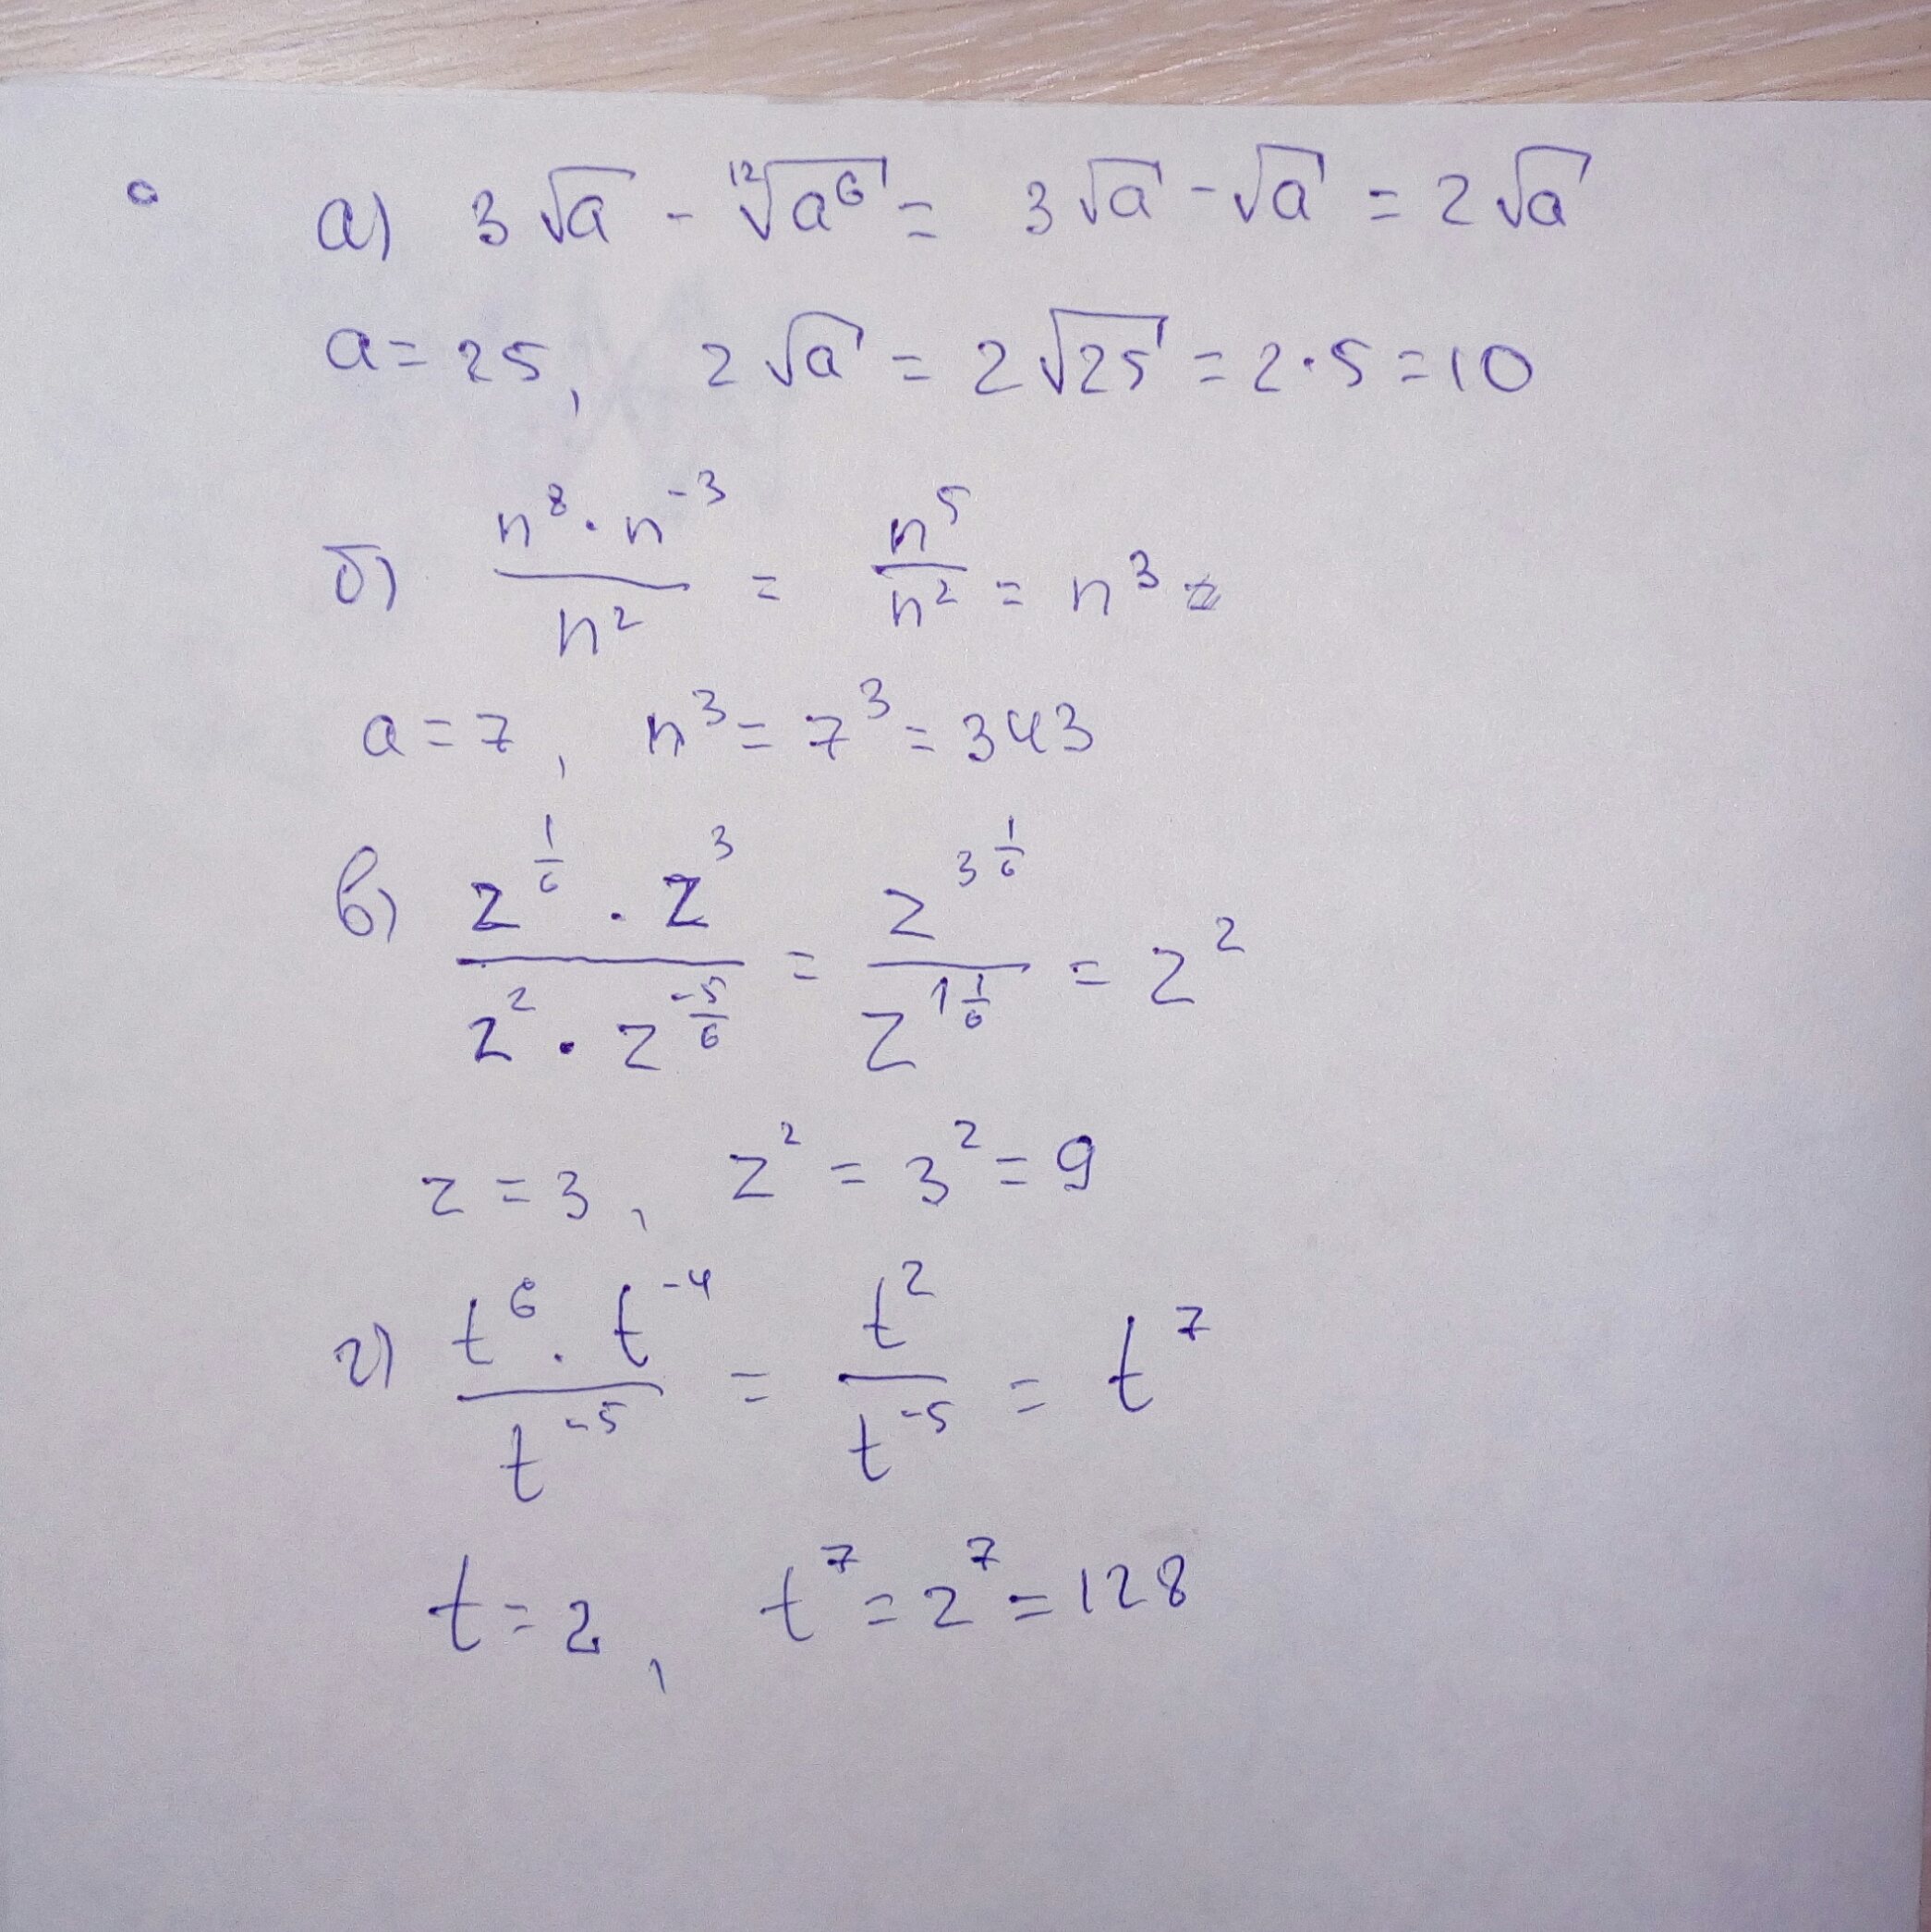 а) 3√a - ¹²√a⁶ = 3√a - √a = 2√a
a = 25, 2√a = 2√25 = 2·5 = 10
б) (n⁸ · n⁻³)/n² = n⁵/n² = n³
a = 7, n³ = 7³ = 343
в) (z^(1/6) · z³)/(z² · z^(-5/6)) = z^(3 1/6)/z^(1 1/6) = z²
z = 3, z² = 3² = 9
г) (t⁶ · t⁻⁴)/t⁻⁵ = t²/t⁻⁵ = t⁷
t = 2, t⁷ = 2⁷ = 128